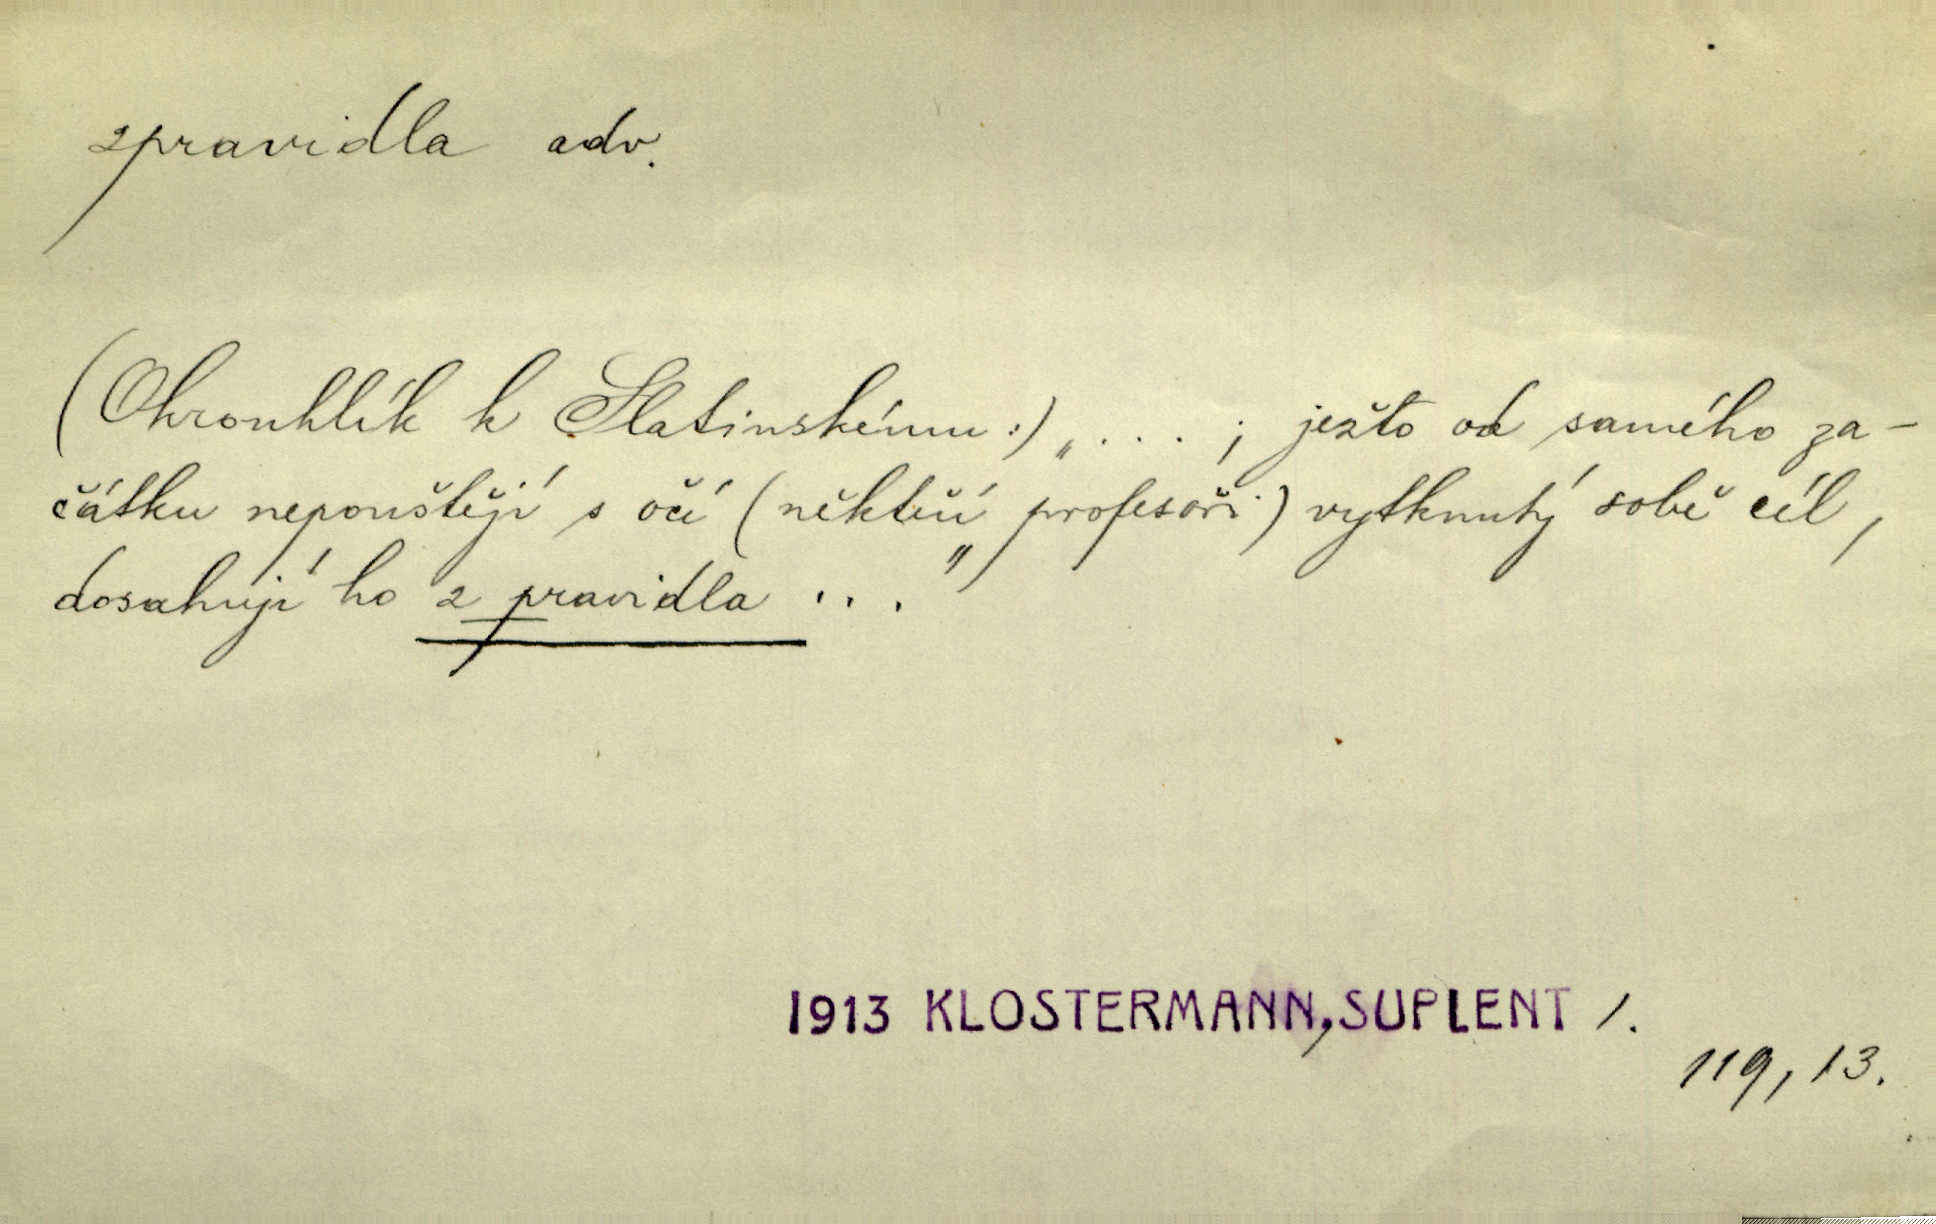 zpravidla adv.
(Okrouhlík k Slatinskému:) „....; ježto od samého za-
čátku nepouštějí s očí (někteří profesoři) vytknutý sobě cíl,
dosahují ho z pravidla ..."
1913 KLOSTERMANN, SUPLENT 1.
119, 13.